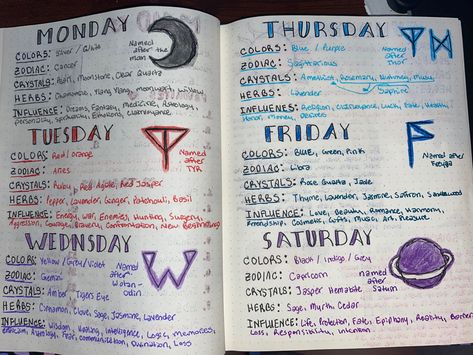 MONDAY
COLORS: Silver / White
ZODIAC: Cancer
CRYSTALS: Moonstone, Clear Quartz
HERBS: Ylang Ylang, Willow
INFLUENCE: Dreams, Fantasy, Medicine, Astrology,
personality, spirituality, Emotions, clairvoyance
Named
after the
moon
TUESDAY
COLORS: Red/orange
ZODIAC: Aries
CRYSTALS: Ruby, Red Agate, Red Jasper
HERBS: Pepper, Lavender, Ginger, Patchouli, Basil
INFLUENCE: Energy, War, Enemies, Hunting, Surgery,
Aggression, Courage, Bravery, Confrontation, New Beginnings
Named
after
TYR
WEDNSDAY
COLORS: Yellow / Grey / Violet
ZODIAC: Gemini
CRYSTALS: Amber, Tigers Eye
HERBS: Cinnamon, Clove, Sage, Jasmine, Lavender
INFLUENCE: Wisdom, Healing, Intelligence, Logic, Memories,
Astrology, communication, Divination, Loss
Named
after
Wotan -
Odin
THURSDAY
COLORS: Blue / Purple
ZODIAC: Sagittarius
CRYSTALS: Amethyst,
HERBS: Lavender
Rosemary, Nutmeg,
Saphire
INFLUENCE: Religion, clairvoyance, Luck, Fate, Wealth,
Honor, Money, Desires
Named
after
Thor
FRIDAY
COLORS: BLUE, Green, Pink
ZODIAC: Libra
CRYSTALS: Rose Quartz, Jade
HERBS: Thyme, Lavender, Jasmine, Saffron, Sandalwood
INFLUENCE: Love, Beauty, Romance, Harmony,
Friendship, Cosmetic, Gifts, Music, Art, Pleasure
Named
after
Freyja
SATURDAY
COLORS: Black / Indigo / Grey
ZODIAC: Capricorn
CRYSTALS: Jasper Hematite
HERBS: Sage, Myrrh, Cedar
INFLUENCE: Life, Protection, Fate, Epiphany, Reality, Burden
Loss, Responsibility, intention
named
after
Saturn